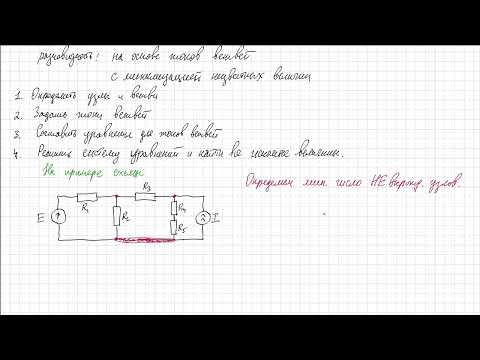 разновидность: на основе токов ветвей
с минимизацией неизвестных величин
1. Определить узлы и ветви
2. Задать токи ветвей
3. Составить уравнения для токов ветвей
4. Решить систему уравнений и найти все искомые величины.
На примере схемы
Определим мин. число НЕ вырожд. узлов.
E
R1
R2
R3
R4
R5
I